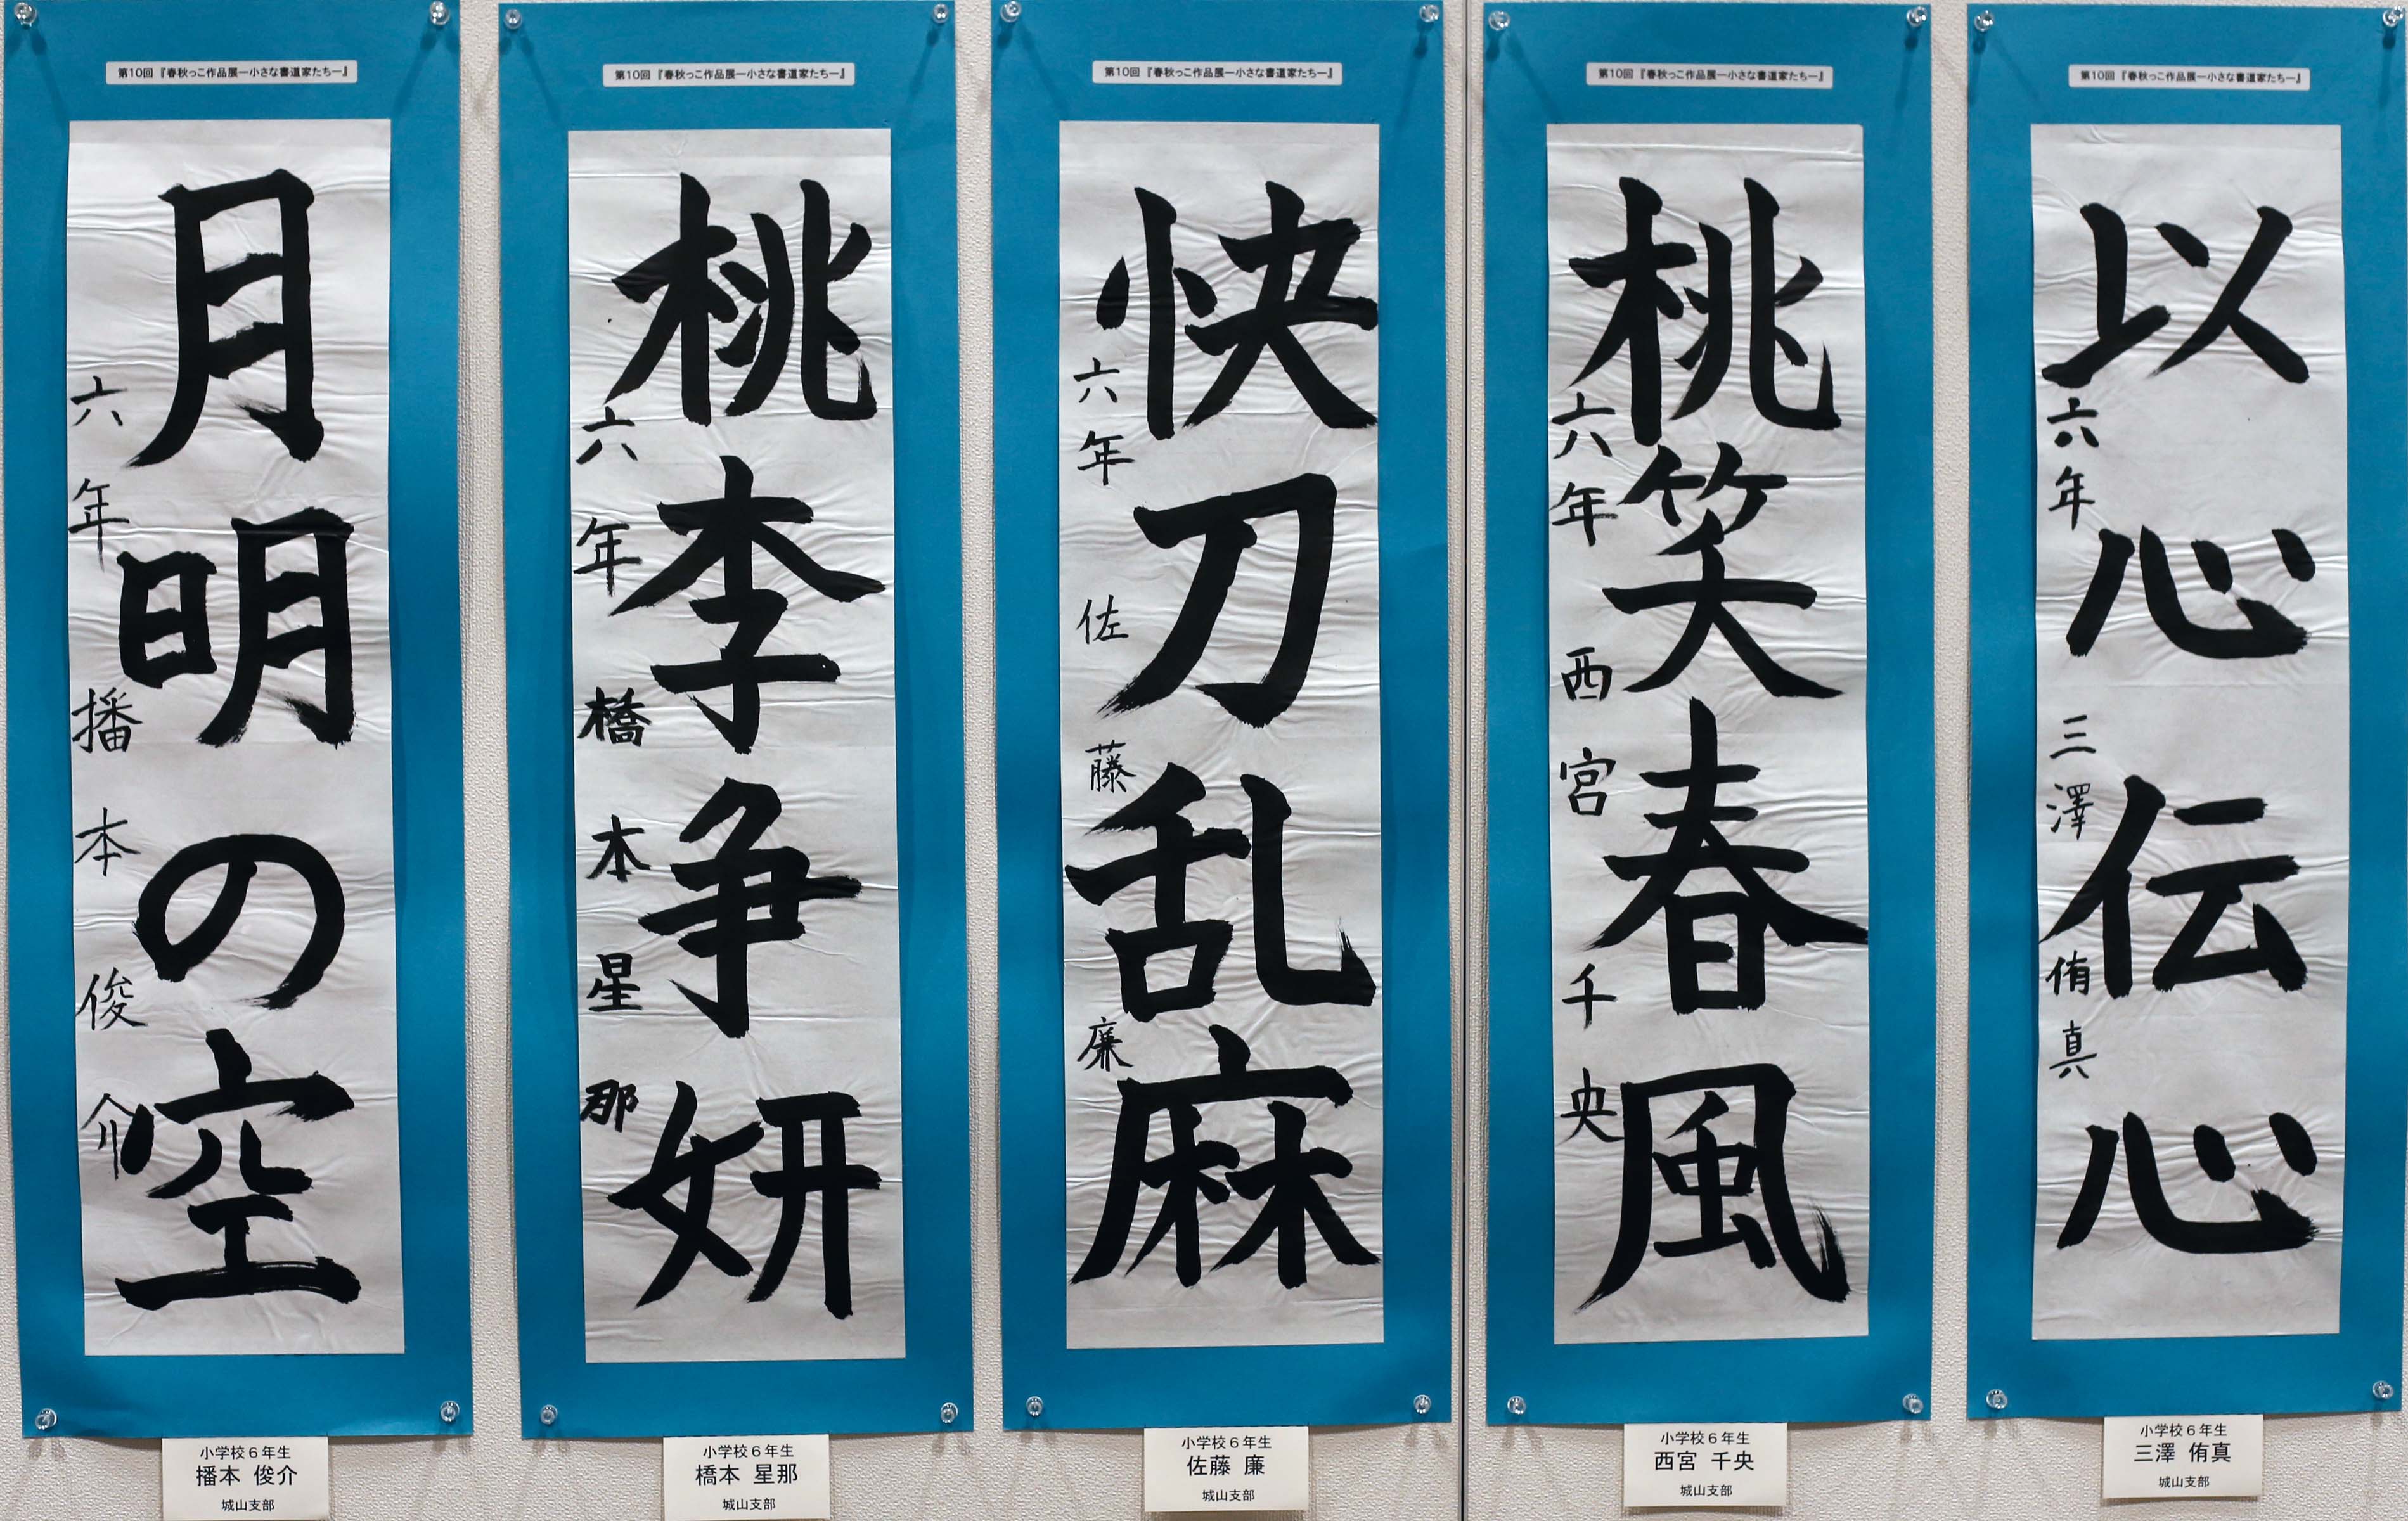 第10回『春秋っこ作品展―小さな書道家たち―』
月明の空
六年 播本俊介
小学校6年生
播本 俊介
城山支部
第10回『春秋っこ作品展―小さな書道家たち―』
桃李争妍
六年 橋本星那
小学校6年生
橋本 星那
城山支部
第10回『春秋っこ作品展―小さな書道家たち―』
快刀乱麻
六年 佐藤廉
小学校6年生
佐藤 廉
城山支部
第10回『春秋っこ作品展―小さな書道家たち―』
桃笑春風
六年 西宮千央
小学校6年生
西宮 千央
城山支部
第10回『春秋っこ作品展―小さな書道家たち―』
以心伝心
六年 三澤侑真
小学校6年生
三澤 侑真
城山支部